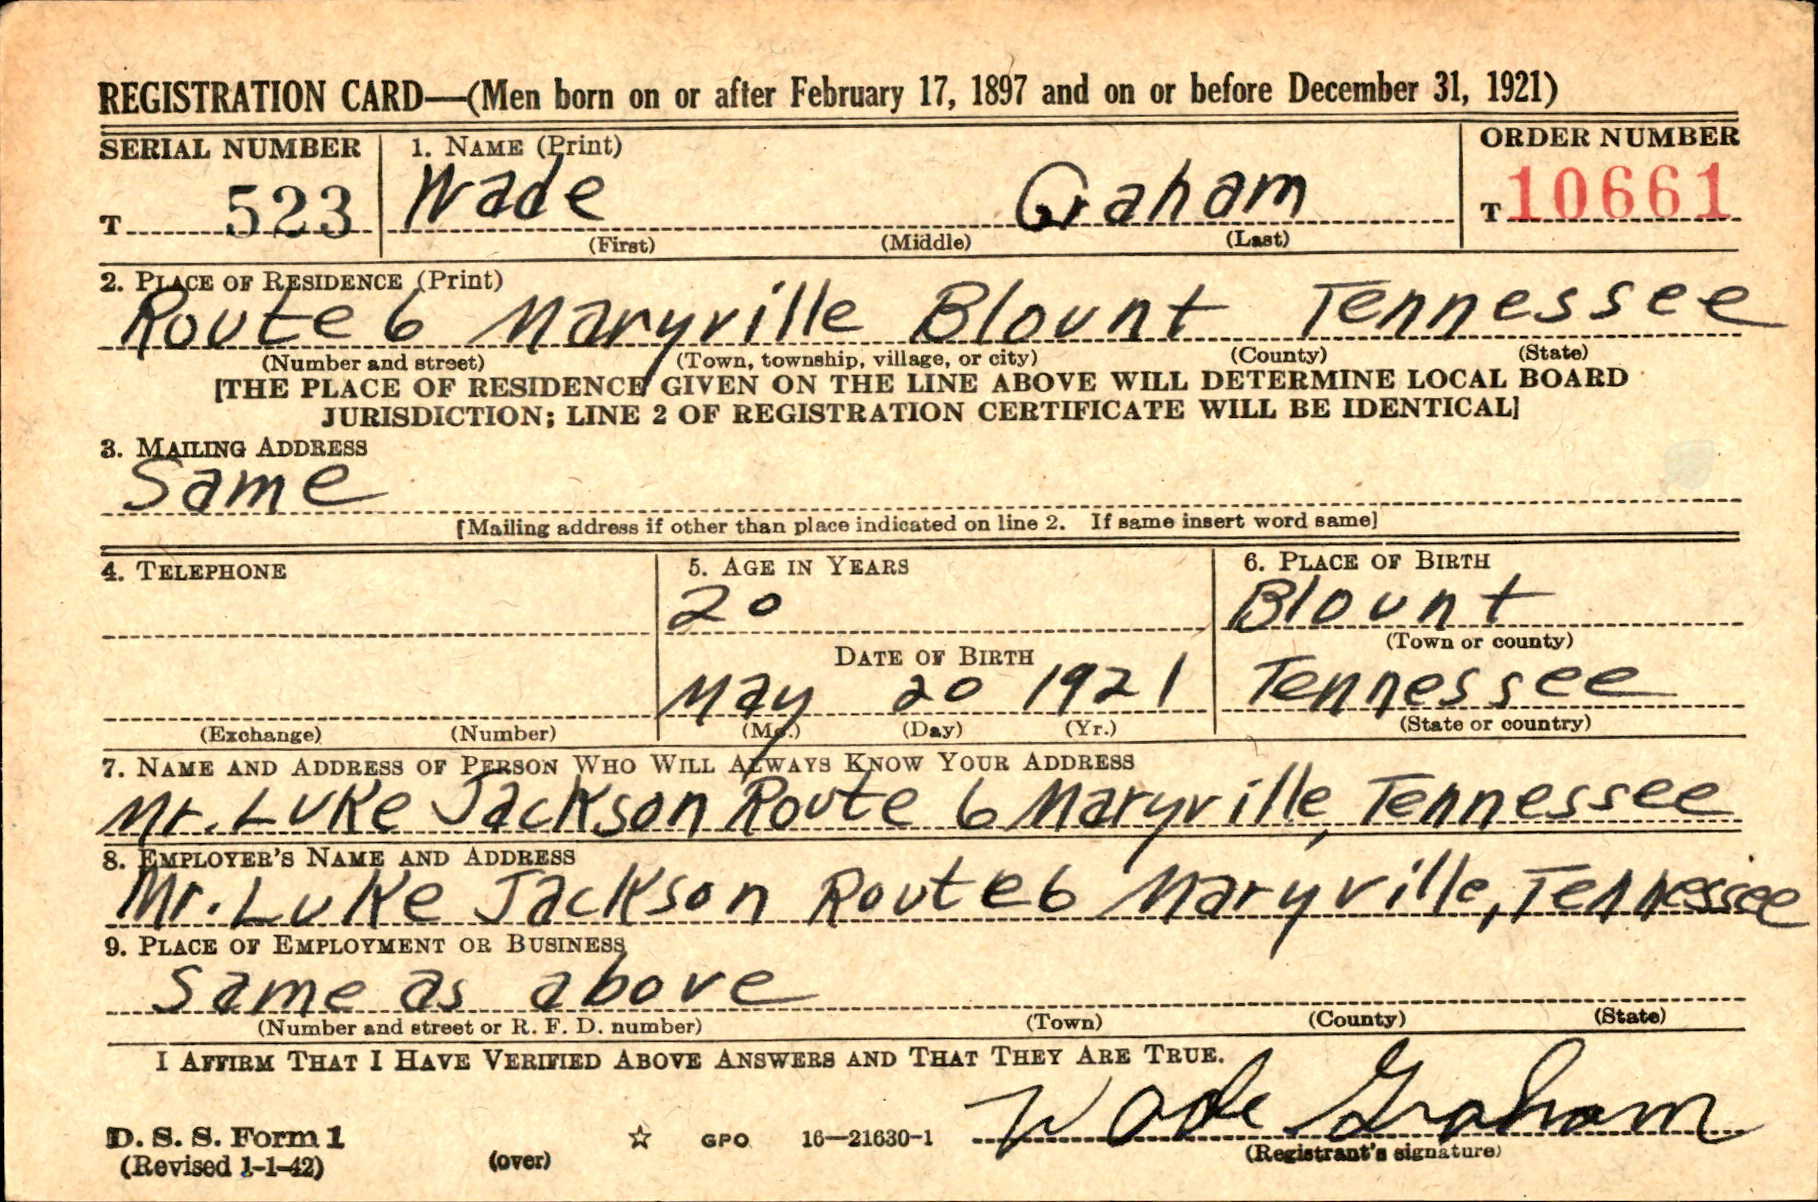 REGISTRATION CARD—(Men born on or after February 17, 1897 and on or before December 31, 1921)
SERIAL NUMBER 1. NAME (Print) ORDER NUMBER
T 523 Wade Graham T 10661
(First) (Middle) (Last)
2. PLACE OF RESIDENCE (Print)
Route 6 Maryville Blount Tennessee
(Number and street) (Town, township, village, or city) (County) (State)
[THE PLACE OF RESIDENCE GIVEN ON THE LINE ABOVE WILL DETERMINE LOCAL BOARD
JURISDICTION; LINE 2 OF REGISTRATION CERTIFICATE WILL BE IDENTICAL]
3. MAILING ADDRESS
Same
[Mailing address if other than place indicated on line 2. If same insert word same]
4. TELEPHONE 5. AGE IN YEARS 6. PLACE OF BIRTH
20 Blount
(Town or county)
DATE OF BIRTH
May 20 1921 Tennessee
(Exchange) (Number) (Mo.) (Day) (Yr.) (State or country)
7. NAME AND ADDRESS OF PERSON WHO WILL ALWAYS KNOW YOUR ADDRESS
Mr. Luke Jackson Route 6 Maryville, Tennessee
8. EMPLOYER'S NAME AND ADDRESS
Mr. Luke Jackson Route 6 Maryville, Tennessee
9. PLACE OF EMPLOYMENT OR BUSINESS
Same as above
(Number and street or R. F. D. number) (Town) (County) (State)
I AFFIRM THAT I HAVE VERIFIED ABOVE ANSWERS AND THAT THEY ARE TRUE.
Wade Graham
D. S. S. Form 1 GPO 16—21630-1
(Revised 1-1-42) (over) (Registrant's signature)